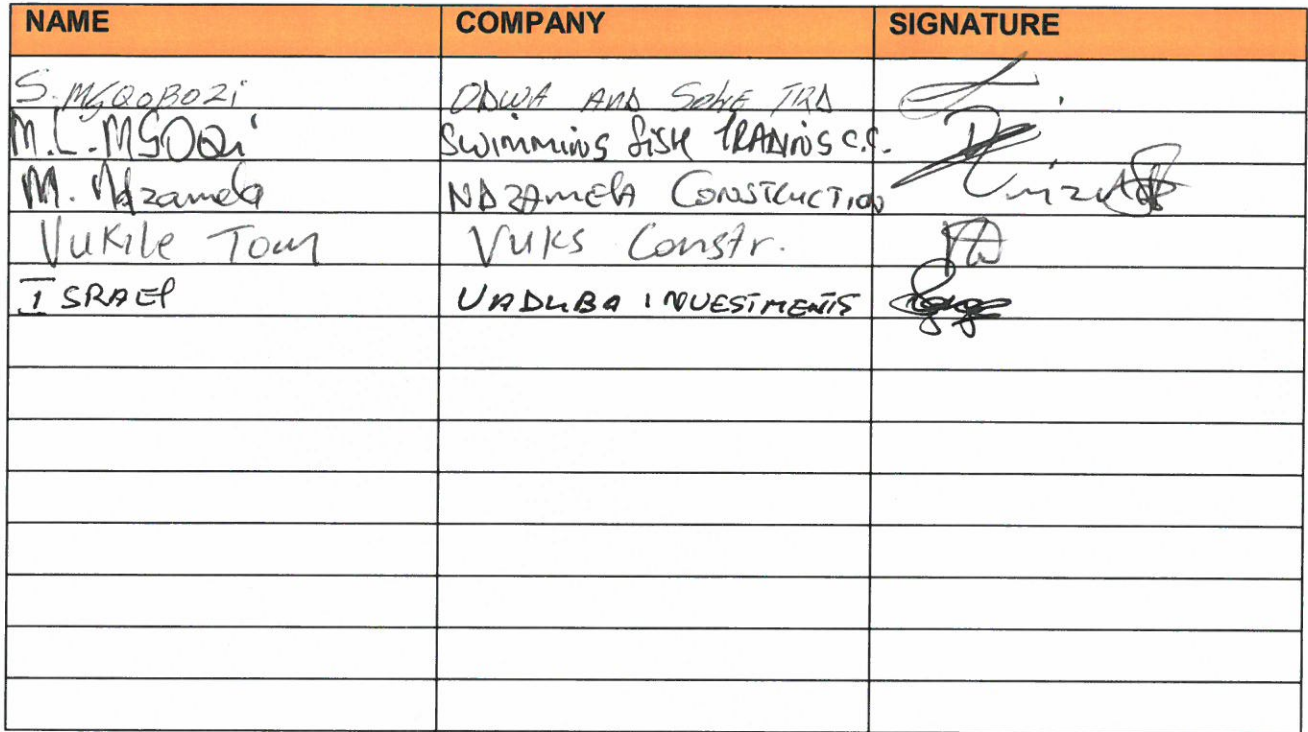 NAME COMPANY SIGNATURE
S. MGQOBOZi ODWA AND SOHE TRD
M.L. MSOQi SWIMMING FISH TRADING C.C.
M. Ndzamela NDZAMELA CONSTRUCTION
Vukile Tom Vuks Constr.
ISRAEL VADUBA INVESTMENTS